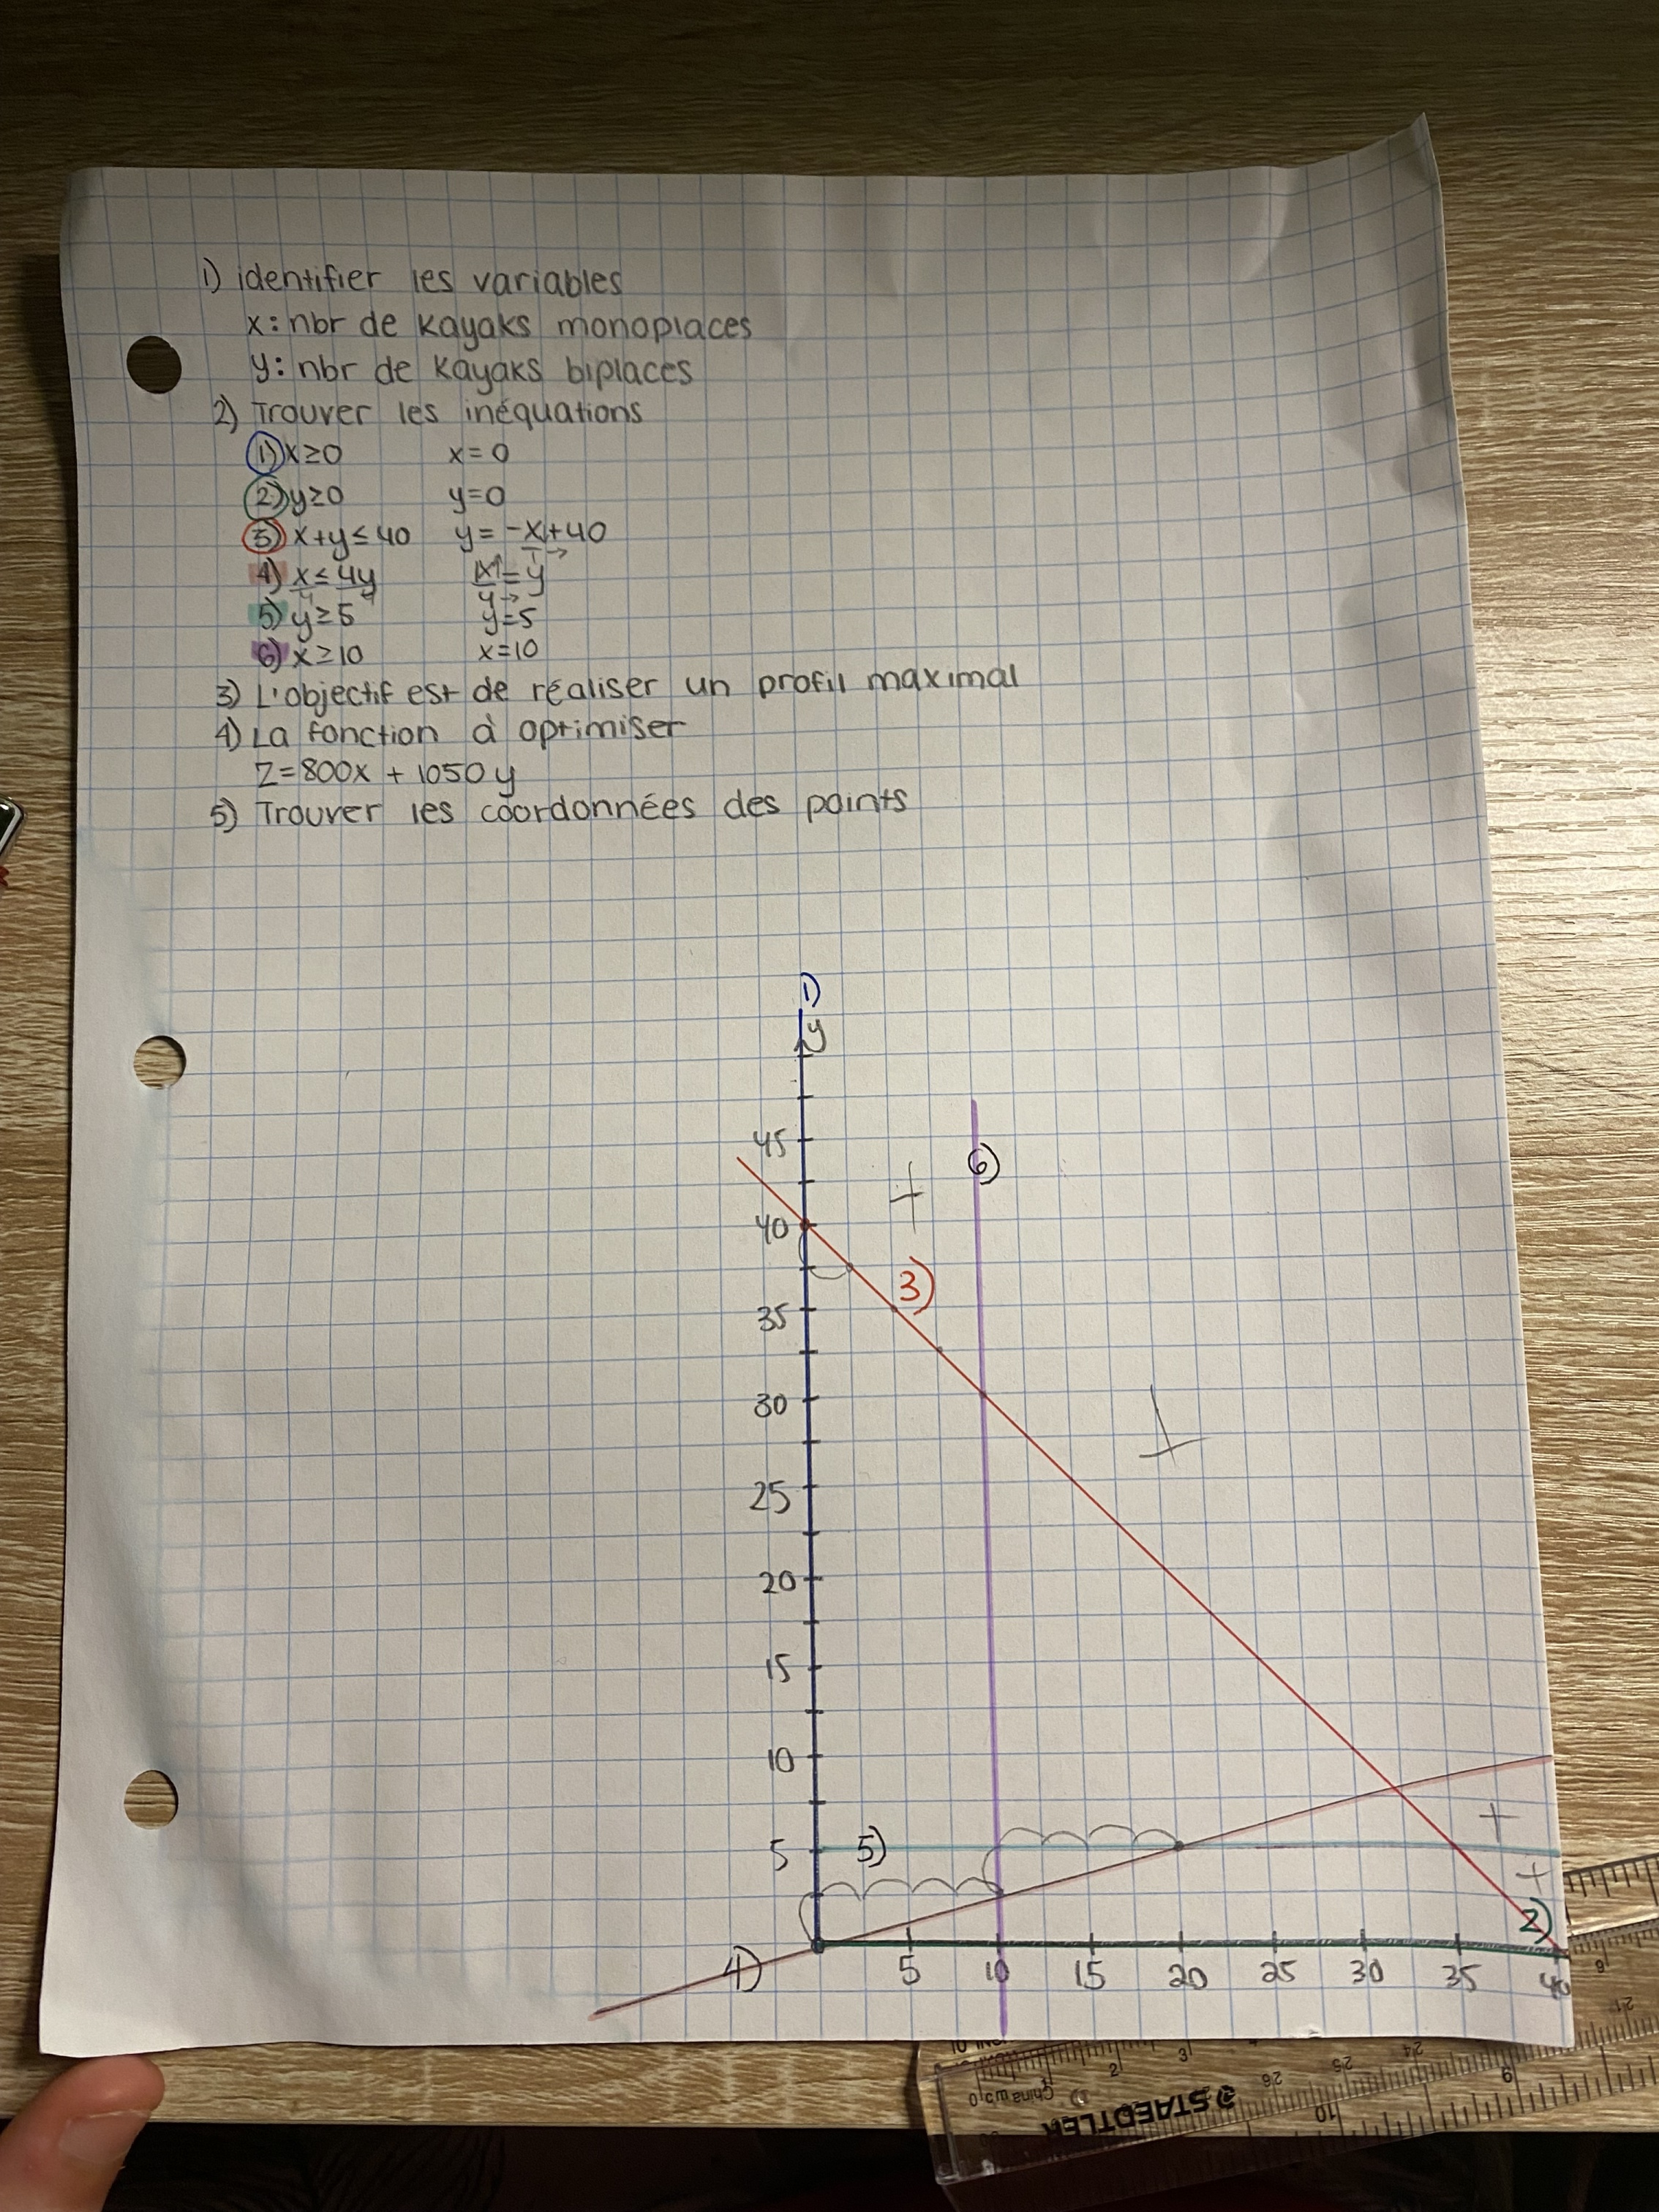 1) identifier les variables
x: nbr de kayaks monoplaces
y: nbr de kayaks biplaces
2) Trouver les inéquations
1) x≥0 x=0
2) y≥0 y=0
3) x+y≤40 y=-x+40
4) x≤4y
5) y≥5 y=5
6) x≥10 x=10
3) L'objectif est de réaliser un profil maximal
4) La fonction à optimiser
Z=800x + 1050y
5) Trouver les coordonnées des points
1)
y
45
6)
40
3)
35
30
25
20
15
10
5 5)
2)
4) 5 10 15 20 25 30 35 40
STAEDTLER
China